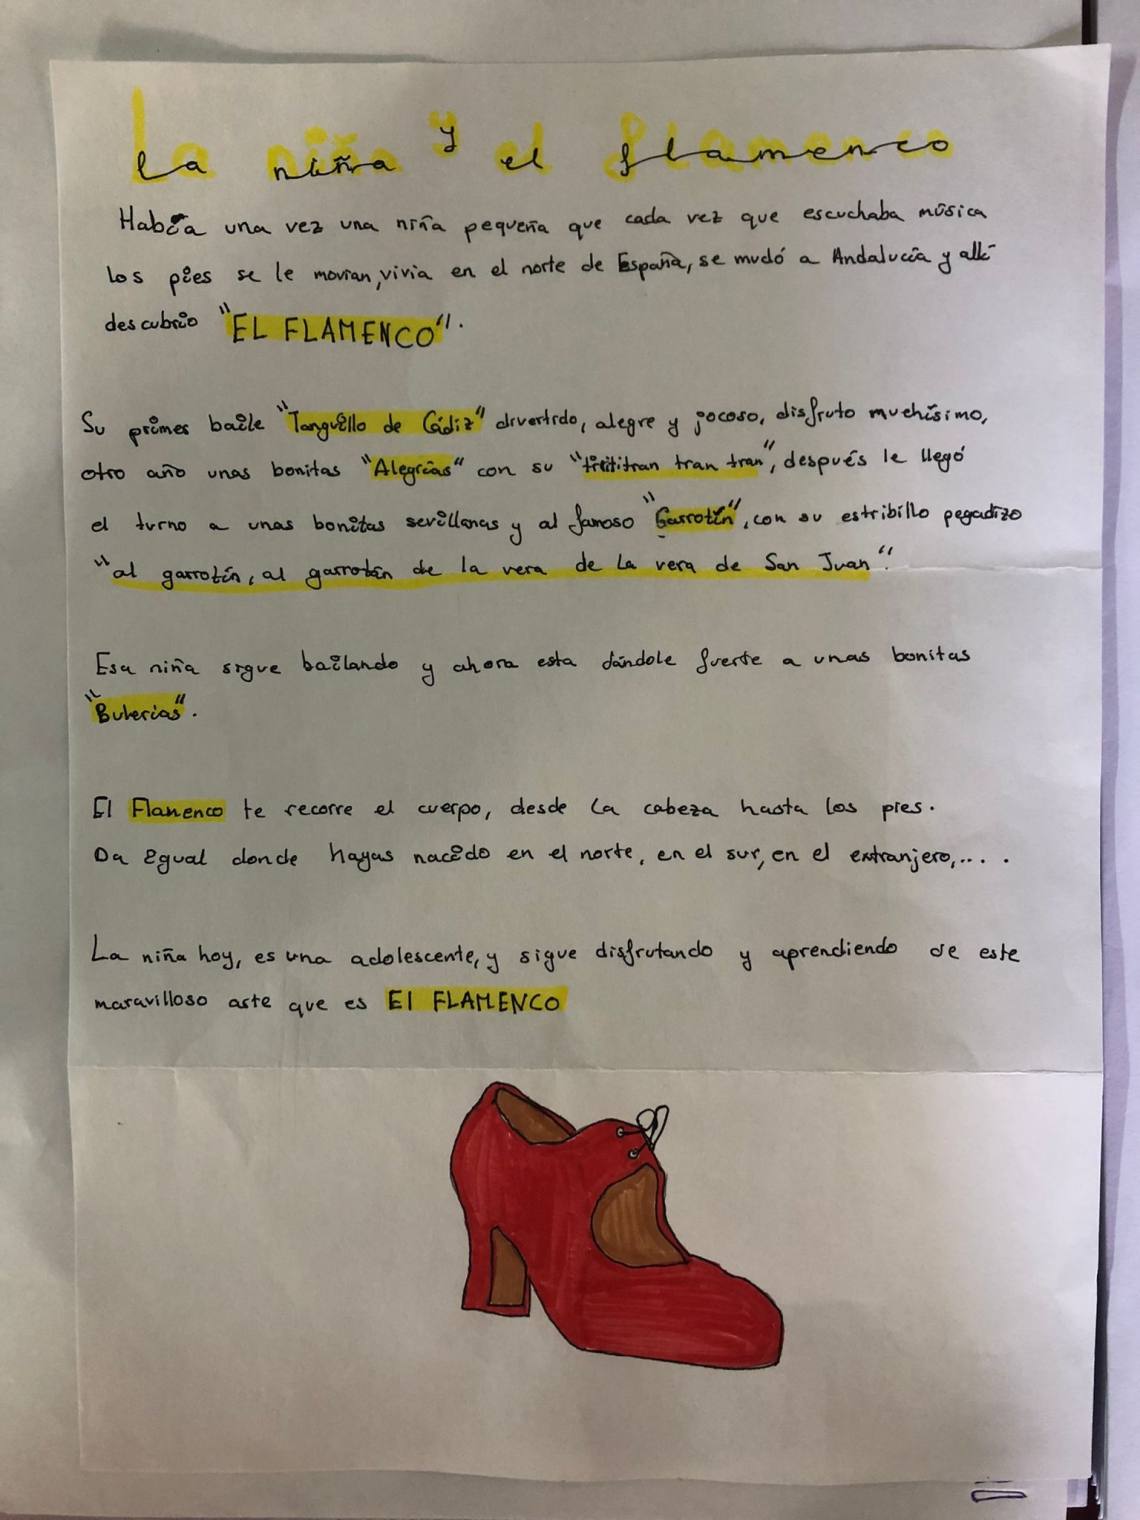 La niña y el flamenco
Había una vez una niña pequeña que cada vez que escuchaba música
los pies se le movian, vivia en el norte de España, se mudó a Andalucía y allí
descubrio "EL FLAMENCO".
Su primer baile "Tanguillo de Cádiz" divertido, alegre y jocoso, disfruto muchísimo,
otro año unas bonitas "Alegrías" con su "tirititran tran tran", después le llegó
el turno a unas bonitas sevillanas y al famoso "Garrotín", con su estribillo pegadizo
"al garrotín, al garrotán de la vera de la vera de San Juan".
Esa niña sigue bailando y ahora esta dándole fuerte a unas bonitas
"Bulerías".
El Flamenco te recorre el cuerpo, desde la cabeza hasta los pies.
Da igual donde hayas nacido en el norte, en el sur, en el extranjero,....
La niña hoy, es una adolescente, y sigue disfrutando y aprendiendo de este
maravilloso arte que es El FLAMENCO